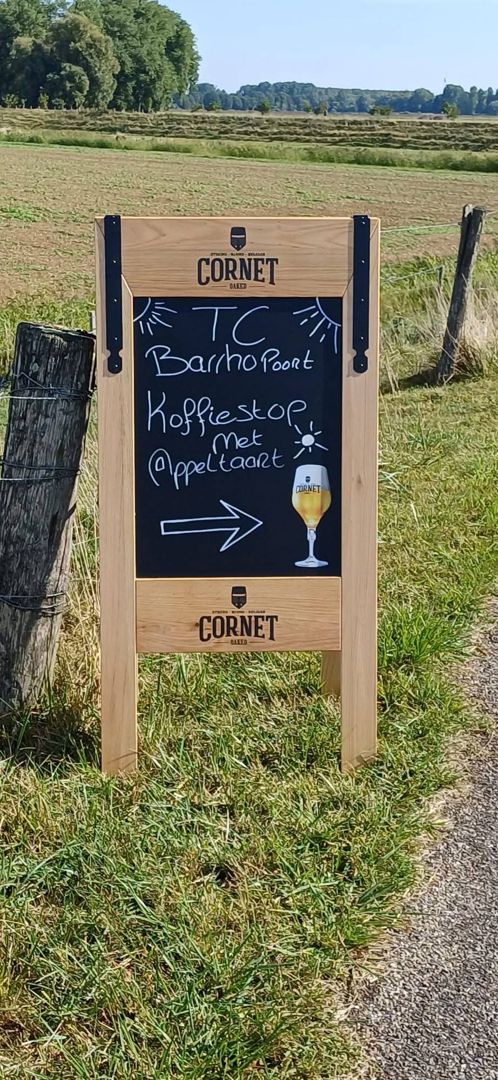 STRONG · BLOND · BELGIAN
CORNET
OAKED
TC
BarrhoPoort
Koffiestop
met
Appeltaart
CORNET
STRONG · BLOND · BELGIAN
CORNET
OAKED